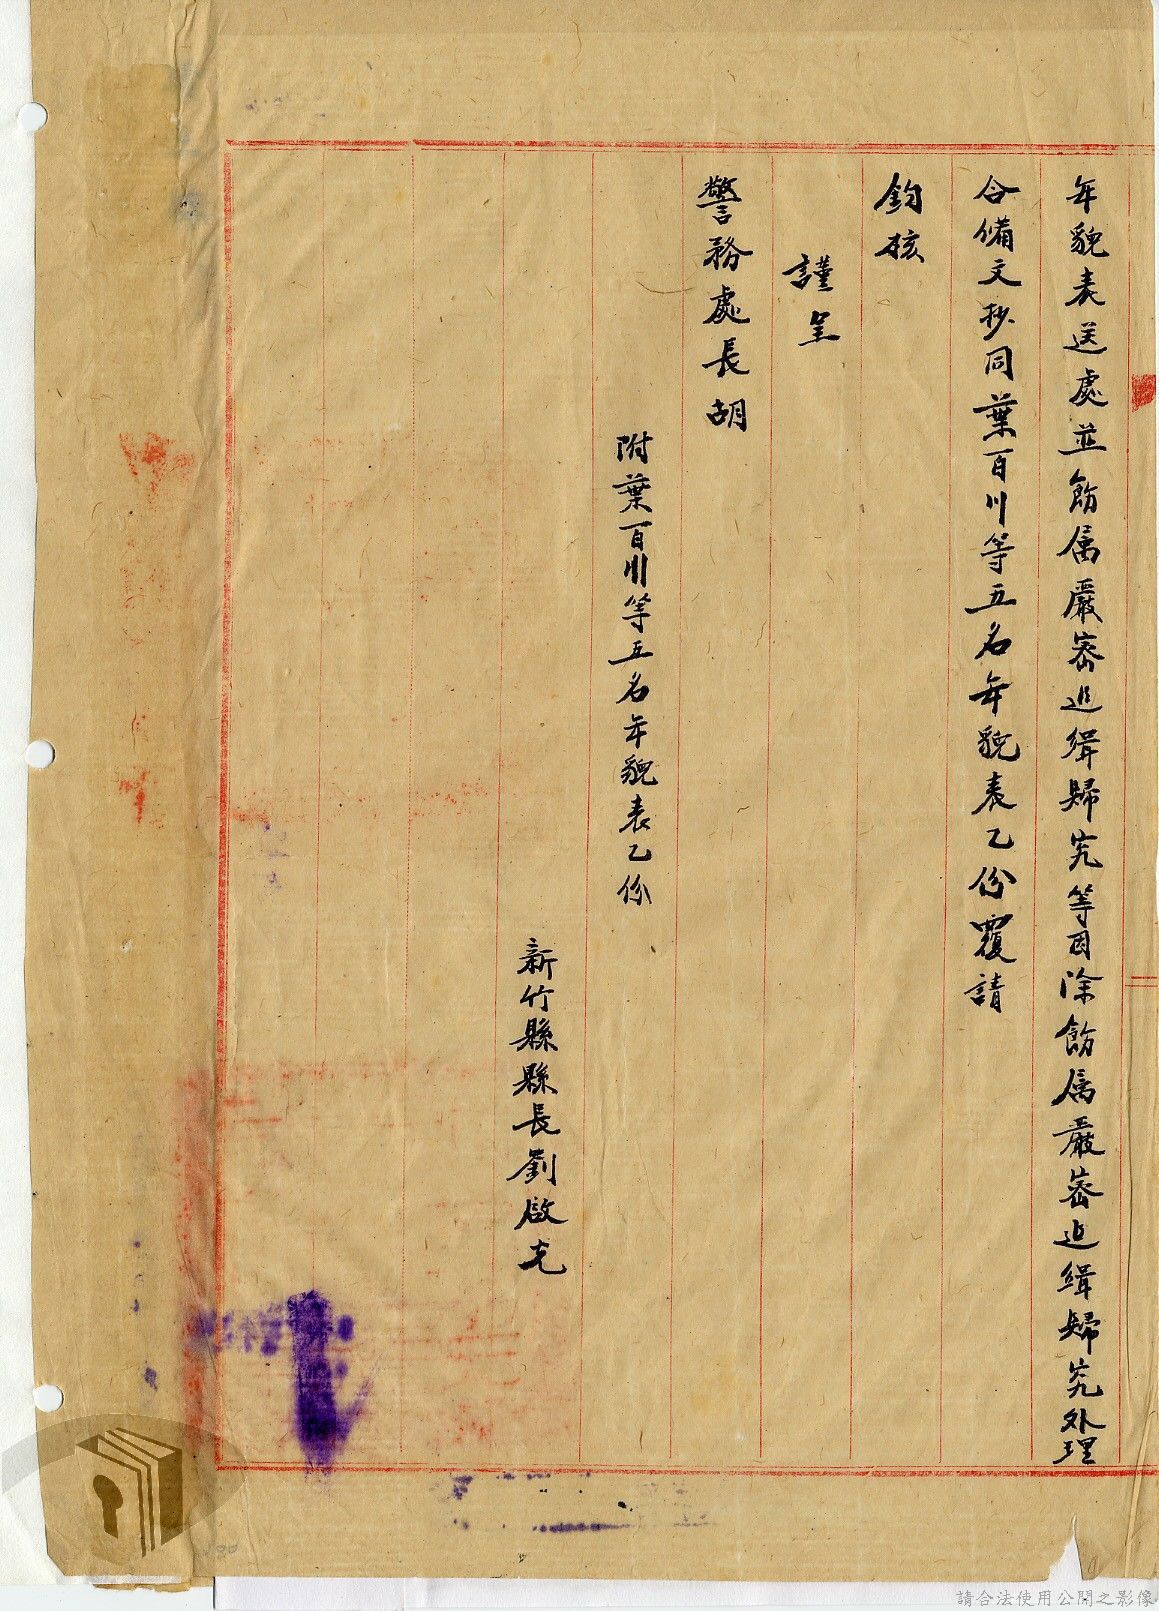 年貌表送處並飭属嚴密追緝歸究等因除飭属嚴密追緝歸究处理
合備文抄同葉百川等五名年貌表乙份覆請
鈞核
謹呈
警務處長胡
附葉百川等五名年貌表乙份
新竹縣縣長劉啟光
請合法使用公開之影像